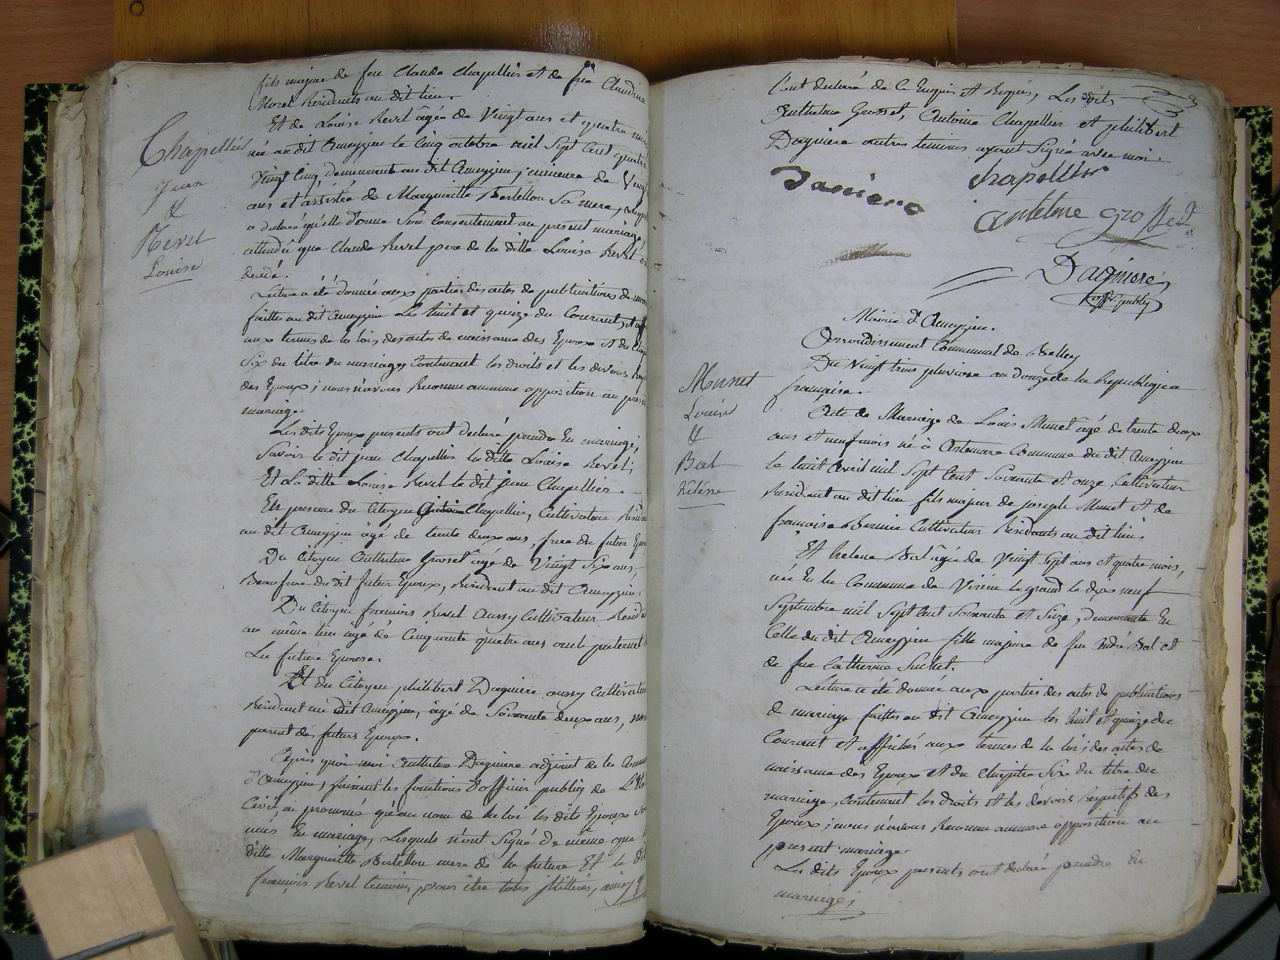 fils majeur de feu Claude Chapellier et de feu Claudine
Morel Résidents au dit lieu.
Chapellier
Jean
&
Revel
Louise
Et de Louise Revel âgée de Vingt ans et quatre mois
née au dit Ameyzieu le Cinq octobre mil Sept Cent quatre
Vingt Cinq demeurante au dit Ameyzieu, mineure de Vingt
ans et assistée de Marguerite Bertellon Sa mere,
a déclaré qu'elle donne Son Consentement au present mariage
attendu que Claude Revel pere de la ditte Louise Revel est
decedé.
Lecture a été donnée aux parties des actes de publications de
faittes au dit Ameyzieu Les huit et quinze du Courant, et
aux termes de la loi, des actes de naissance des Epoux et du
Six du titre du mariage, Contenant les droits et les devoirs
des Epoux; nous n'avons Reconnu aucunne opposition au present
mariage.
Les dits Epoux presents ont declaré prendre En mariage;
Savoir le dit jean Chapellier la ditte Louise Revel;
Et La ditte Louise Revel le dit jean Chapellier.
En presence du Citoyen Chapellier, Cultivateur Résident
au dit Ameyzieu âgé de trente deux ans, frere du futur Epoux
Du Citoyen Anthelme Grosset âgé de Vingt Six ans
Beaufrere du dit futur Epoux, Résident au dit Ameyzieu;
Du Citoyen françois Revel aussy Cultivateur Résident
au même lieu âgé de Cinquante quatre ans oncle paternel de
La future Epouse.
Et du Citoyen philibert Dagniere aussy Cultivateur
Résident au dit Ameyzieu, âgé de Soixante deux ans, non
parent des futurs Epoux.
Après quoi moi Anthelme Dagniere adjoint de la Commune
d'Ameyzieu, faisant les fonctions d'officier public de L'Etat
Civil, ai prononcé qu'au nom de la loi les dits Epoux sont
unis En mariage, Lesquels n'ont Signé de même que la
ditte Marguerite Bertellon mere de la future Et le dit
françois Revel temoin, pour être tous illitérés, ainsi qu'ils
l'ont declaré de Ce Enquis et Requis, Les dits
Anthelme Grosset, Antoine Chapellier et philibert
Dagniere autres temoins ayant Signé avec moi.
Daniere
chapellier
antelme grosset
Dagniere,
off. public
Mairie d'Ameyzieu.
Arrondissement Communal de Belley
Du Vingt trois pluviose an douze de la Republique
française.
Munet
Louis
&
Bal
Hélène
Acte de Mariage de Louis Munet âgé de trente deux
ans et neuf mois né à Artemare Commune du dit Ameyzieu
le huit avril mil Sept Cent Soixante et onze, Cultivateur
Résident au dit lieu fils majeur de joseph Munet et de
françoise Bernin Cultivateurs Résidents au dit lieu.
Et helene Bal âgée de Vingt Sept ans et quatre mois,
née En la Commune de Virieu le grand le dix neuf
Septembre mil Sept Cent Soixante et Seize, demeurante En
Celle du dit Ameyzieu fille majeure de feu André Bal et
de feue Catherine Suchet.
Lecture a été donnée aux parties des actes de publications
de mariage faittes au dit Ameyzieu les huit et quinze du
Courant et affichés aux termes de la loi; des actes de
naissance des Epoux et du Chapitre Six du titre du
mariage, Contenant les droits et les devoirs respectifs des
Epoux; nous n'avons Reconnu aucunne opposition au
present mariage.
Les dits Epoux presents ont declaré prendre En
mariage;